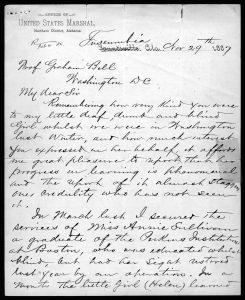 OFFICE OF
UNITED STATES MARSHAL,
Northern District, Alabama.
Tuscumbia
Huntsville, Ala. Nov 29th 1887
Prof Graham Bell
Washington D C
My dear Sir
Remembering how very kind you were
to my little deaf, dumb and blind
Girl whilst we were in Washington
last Winter, and how much interest
you expressed in her behalf, it affords
me great pleasure to report that her
progress in learning is phenomenal
and the report of it almost staggers
ones credulity who has not seen
it.
In March last I secured the
services of Miss Annie Sullivan
a graduate of the Perkins Institution
at Boston, who was educated while
blind but had her sight restored
last year by an operation. In a
month the little Girl (Helen) learned